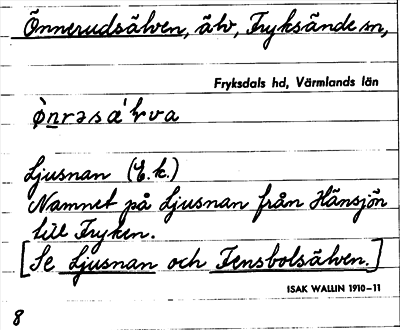 Önnerudsälven, älv, Fryksände sn,
Fryksdals hd, Värmlands län
Ljusnan (E.k.)
Namnet på Ljusnan från Hänsjön
till Fryken.
[Se Ljusnan och Fensbolsälven.]
ISAK WALLIN 1910–11
8